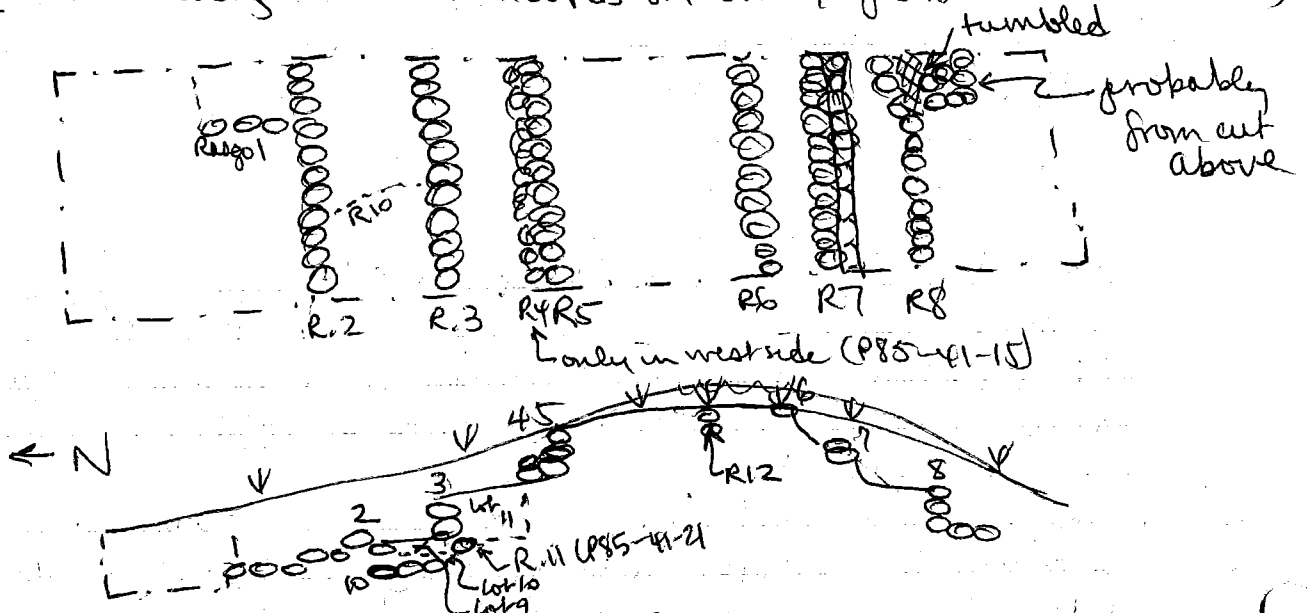 tumbled
probably
from cut
above
Rasgo 1
R10
R.2
R.3
R4 R5
R6
R7
R8
only in west side (P85-41-15)
← N
4 5
6
7
8
R12
3
Lot 11
2
1
R.11 (P85-41-21
10
Lot 10
Lot 9